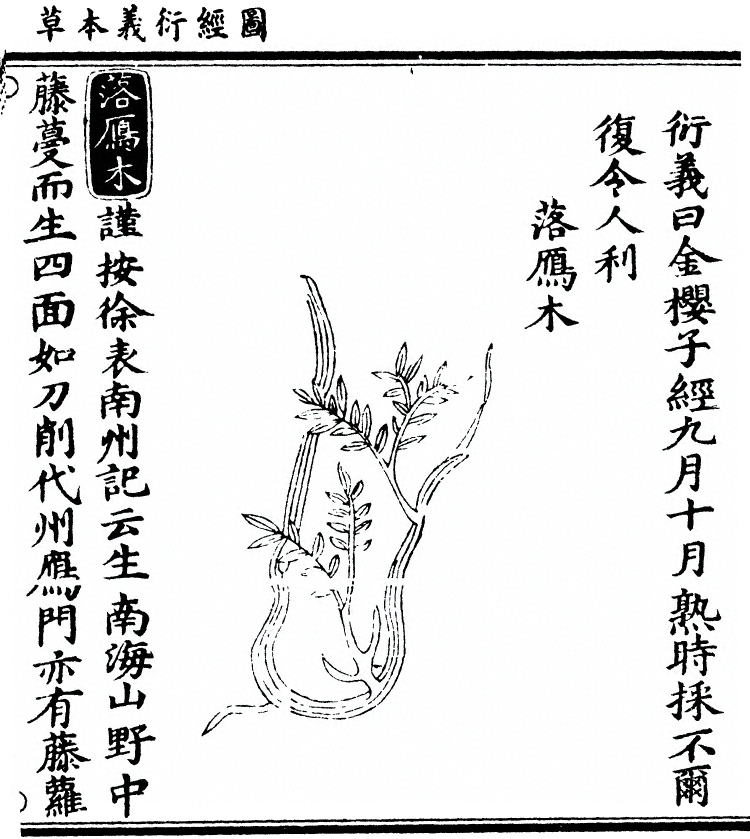 圖經衍義本草
衍義曰金櫻子經九月十月熟時採不爾
復令人利
落鴈木
落鴈木謹按徐表南州記云生南海山野中
藤蔓而生四面如刀削代州鴈門亦有藤蘿